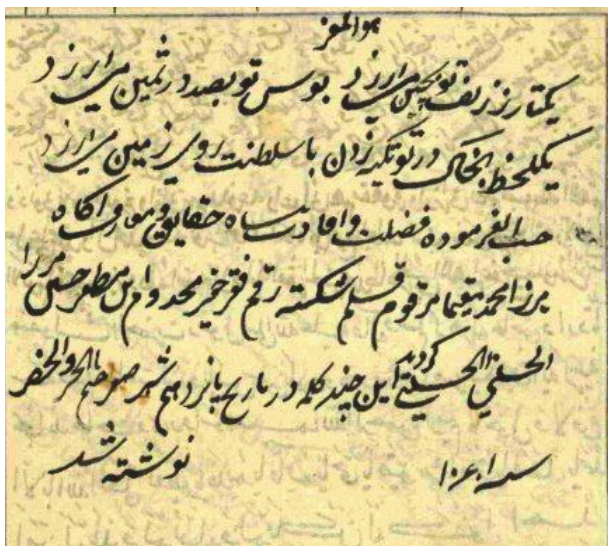 هو المعز
یکتار ز زلف تو بچین می ارزد بوس تو بصد در ثمین می ارزد
یکلحظه بخاک در تو تکیه زدن با سلطنت روی زمین می ارزد
حسب الفرموده فضیلت و افادت پناه حقایق و معارف آگاه
میرزا محمد مقیما مرقوم قلم شکسته رقم فقیر حقیر محمد ابن مظفر حسین
الحسنی الحسینی گردید این چند کلمه در تاریخ پانزدهم شهر صفر ختم بالخیر والظفر
سنه ۱۰۶۱ نوشته شد